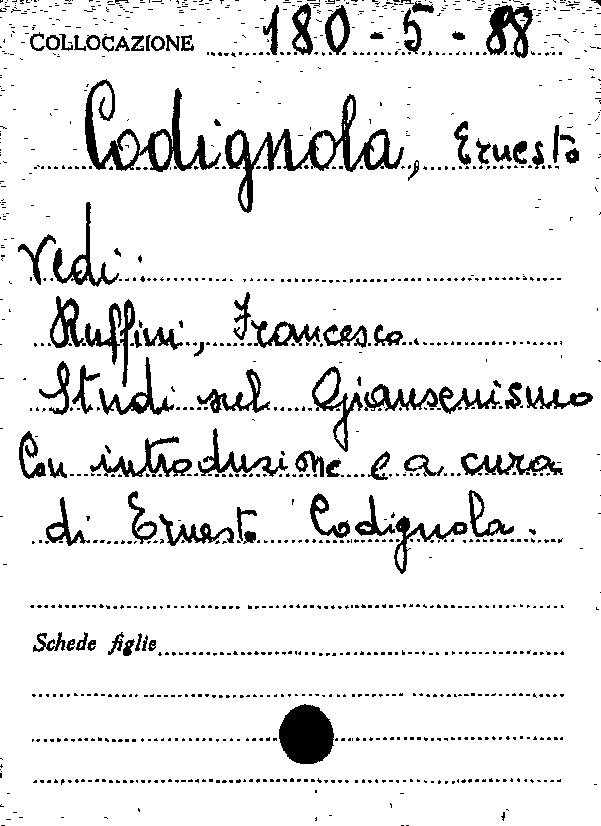 COLLOCAZIONE 180-5-88
Codignola, Ernesto
Vedi:
Ruffini, Francesco.
Studi sul Giansenismo
Con introduzione e a cura
di Ernesto Codignola.
Schede figlie